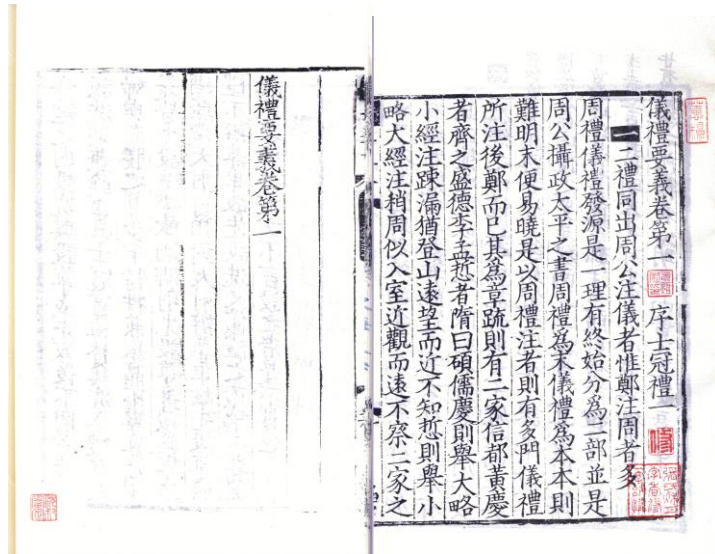 儀禮要義卷第一　序士冠禮一
一　二禮同出周公注儀者惟鄭注周者多
周禮儀禮發源是一理有終始分爲二部並是
周公攝政太平之書周禮爲末儀禮爲本本則
難明末便易曉是以周禮注者則有多門儀禮
所注後鄭而已其爲章疏則有二家信都黃慶
者齊之盛德李孟悊者隋曰碩儒慶則舉大略
小經注踈漏猶登山遠望而近不知悊則舉小
略大經注稍周似入室近觀而遠不察二家之
儀禮要義卷第一